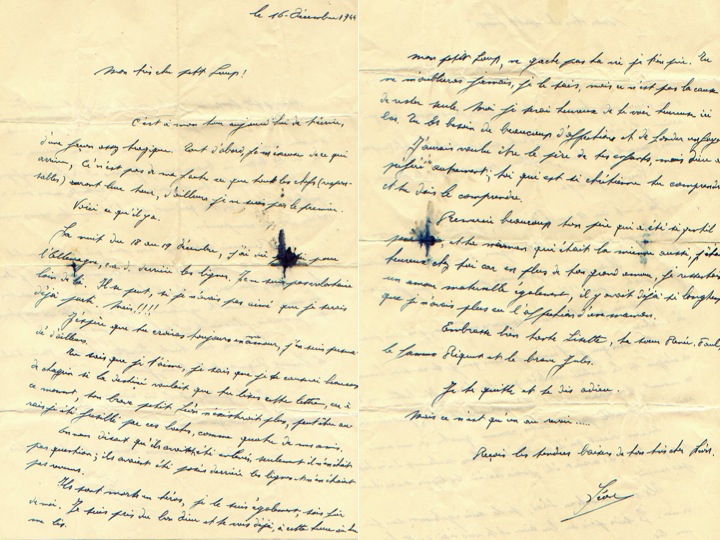 le 16 Décembre 1944
Mon très cher petit Loup!
C'est à mon tour aujourd'hui de t'écrire,
d'une façon assez tragique. Tout d'abord, je m'excuse de ce qui
arrive, ce n'est pas de ma faute ce que tous les chefs (respon-
sables) auront leur tour, d'ailleurs je ne suis pas le premier.
Voici ce qu'il y a.
La nuit du 18 au 19 Décembre, j'ai pour
l'Allemagne, c.à.d. derrière les lignes. Je suis parachutiste
loin de Il se peut, si je n'avais pas aimé que je serais
déjà parti, mais!!!!
J'espère que tu croiras toujours en mon amour, j'en suis persua-
dé d'ailleurs.
Tu sais que je t'aime, je sais que je te causerai beaucoup
de chagrin si la destinée voulait que tu lises cette lettre, car à
ce moment, ton brave petit Léon n'existerait plus, peut-être au-
rais-je été fusillé par ces boches, comme quatre de mes amis.
On nous disait qu'ils avaient été enlevés, seulement il n'en était
pas question; ils avaient été posés derrière les lignes et n'en étaient
pas revenus.
Ils sont morts en héros, je le suis également, sois fière
de moi. Je suis près du bon Dieu et te vois déjà, à cette heure où tu
me lis.
Mon petit Loup, ne gâche pas ta vie je t'en prie. Tu
ne m'oublieras jamais, je le sais, mais ce n'est pas la cause
de rester seule. Moi je serai heureux de te voir heureuse ici
bas. Tu as besoin de beaucoup d'affections et de fonder un foyer
J'aurais voulu être le père de tes enfants, mais Dieu a
préféré autrement, toi qui est si chrétienne tu comprends
et tu dois le comprendre.
Remercie beaucoup ton père qui a été si gentil
pour et ta maman qui était la mienne aussi, j'étais
heureux chez toi car en plus de ton grand amour, je ressentais
un amour maternelle également, il y avait déjà si longtemps
que je n'avais plus eu l'affection d'une maman.
Embrasse bien tante Lisette, ta soeur Paul
le et le brave Jules.
Je te quitte et te dis adieu.
Mais ce n'est qu'un au revoir.....
Reçois les tendres baisers de ton très cher Léon.
Léon